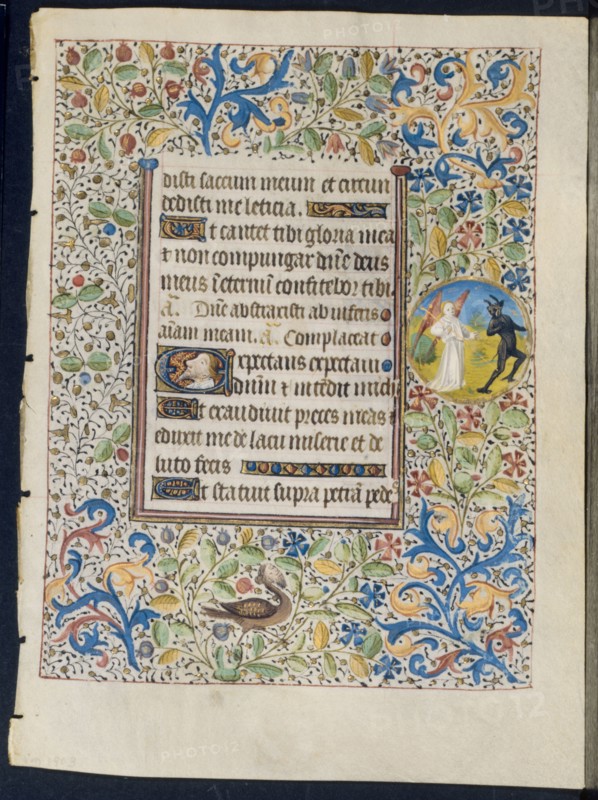 disti saccum meum et circun
dedisti me leticia.
Ut cantet tibi gloria mea
et non compungar dn̄e deus
meus ī eternū confitebor tibi.
A. Dn̄e abstraxisti ab inferis
aīam meam. A. Complaceat
Expectans expectavi
dn̄m et intēdit michi
Et exaudivit preces meas et
eduxit me de lacu miserie et de
luto fecis
Et statuit supra petrā pede
PHOTO12
PHOTO12
PHOTO12